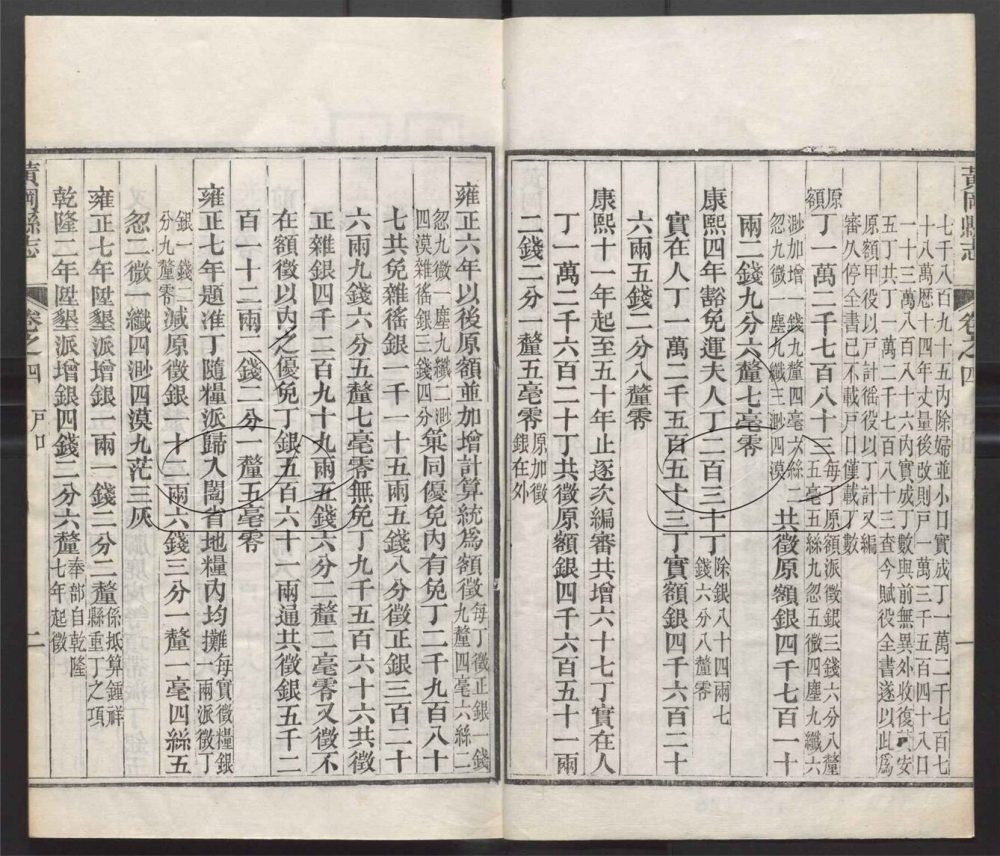 黃岡縣志
卷之四
一
七千八百九十五內除婦並小口實成丁一萬二千七百七
十八萬曆十四年丈量後改則戶一萬三千五百四十八口
一十三萬八百八十六內實成丁數與前無異外收復武安
五丁共丁一萬二千七百八十三查今賦役全書遂以此爲
原額甲役以戶計徭役以丁計又編
審久停全書已不載戶口僅載丁數
原額丁一萬二千七百八十三每丁原額派徵銀三錢六分八釐五毫五絲九忽五微四塵九纖六
渺加增一錢九釐四毫六絲二忽九微一塵九纖三渺四漠共徵原額銀四千七百一十
兩二錢九分六釐七毫零
康熙四年豁免運夫人丁二百三十丁除銀八十四兩七錢六分八釐零
實在人丁一萬二千五百五十三丁實額銀四千六百二十
六兩五錢二分八釐零
康熙十一年起至五十年止逐次編審共增六十七丁實在人
丁一萬二千六百二十丁共徵原額銀四千六百五十一兩
二錢二分一釐五毫零原加徵銀在外
雍正六年以後原額並加增計算統爲額徵每丁徵正銀一錢九釐四毫六絲二
忽九微一塵九纖二渺四漠雜徭銀三錢四分篥同優免內有免丁二千九百八十
七共免雜徭銀一千一十五兩五錢八分徵正銀三百二十
六兩九錢六分五釐七毫零無免丁九千五百六十六共徵
正雜銀四千二百九十九兩五錢六分二釐二毫零又徵不
在額徵以內之優免丁銀五百六十一兩通共徵銀五千二
百一十二兩二錢二分一釐五毫零
雍正七年題准丁隨糧派歸入闔省地糧內均攤每實徵糧銀一兩派徵丁
銀一錢二分九釐零減原徵銀一十二兩六錢三分一釐一毫四絲五
忽二微一纖四渺四漠九茫三灰
雍正七年陞墾派增銀一兩一錢二分二釐係抵算鍾祥縣重丁之項
乾隆二年陞墾派增銀四錢二分六釐奉部自乾隆七年起徵
黃岡縣志
卷之四
戶口
二